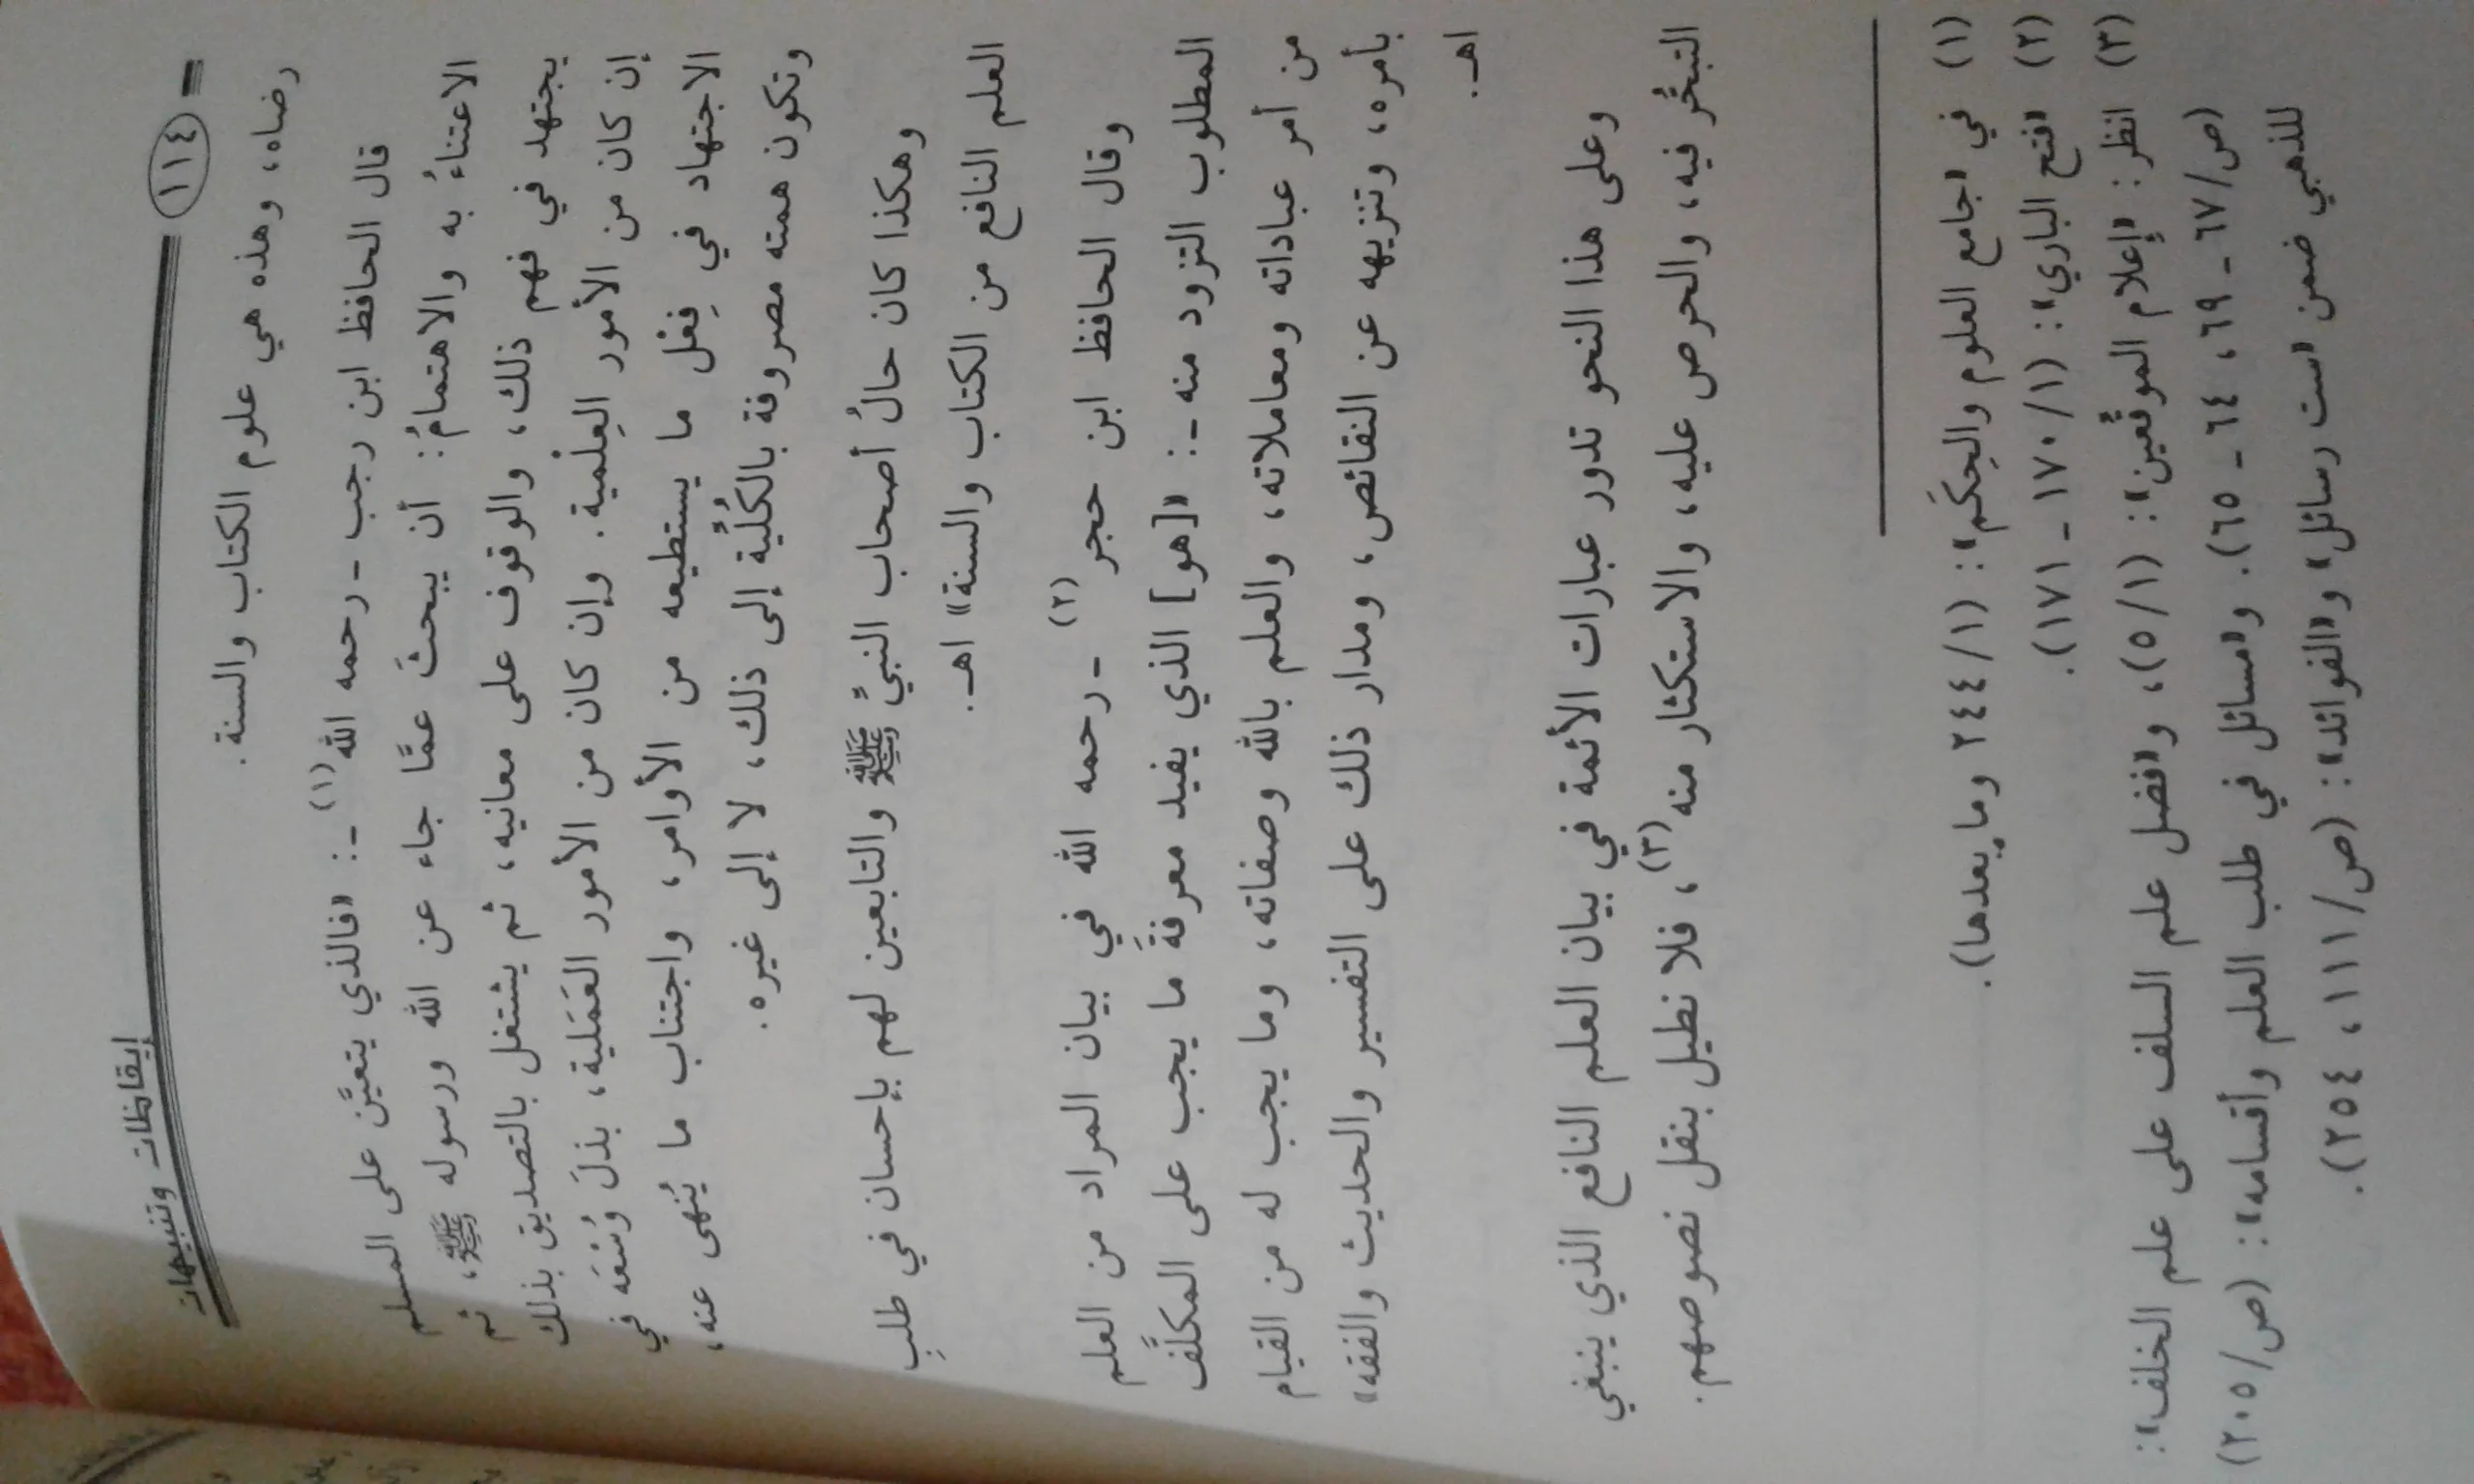 ١١٤
إيقاظات وتنبيهات
رضاه، وهذه هي علوم الكتاب والسنة.
قال الحافظ ابن رجب - رحمه الله(١) -: «فالذي يتعيَّن على المسلم
الاعتناءُ به والاهتمامُ: أن يبحثَ عمَّا جاء عن الله ورسوله ﷺ، ثم
يجتهد في فهم ذلك، والوقوف على معانيه، ثم يشتغل بالتصديق بذلك
إن كان من الأمور العِلْمية. وإن كان من الأمور العَمَلية، بذلَ وُسْعَه في
الاجتهاد في فِعْل ما يستطيعه من الأوامر، واجتناب ما يُنهى عنه،
وتكون همته مصروفة بالكُلِّية إلى ذلك، لا إلى غيره.
وهكذا كان حالُ أصحاب النبيِّ ﷺ والتابعين لهم بإحسان في طلبِ
العلم النافع من الكتاب والسنة» اهـ.
وقال الحافظ ابن حجر(٢) - رحمه الله في بيان المراد من العلم
المطلوب التزود منه -: «[هو] الذي يفيد معرفةَ ما يجب على المكلَّف
من أمر عباداته ومعاملاته، والعلم بالله وصفاته، وما يجب له من القيام
بأمره، وتنزيهه عن النقائص، ومدار ذلك على التفسير والحديث والفقه»
اهـ.
وعلى هذا النحو تدور عبارات الأئمة في بيان العلم النافع الذي ينبغي
التبحُّر فيه، والحرص عليه، والاستكثار منه(٣)، فلا نطيل بنقل نصوصهم.
(١) في «جامع العلوم والحِكَم»: (١/ ٢٤٤ وما بعدها).
(٢) «فتح الباري»: (١/ ١٧٠ - ١٧١).
(٣) انظر: «إعلام الموقِّعين»: (١/ ٥)، و«فضل علم السلف على علم الخلف»:
(ص/ ٦٧ - ٦٩، ٦٤ - ٦٥). و«مسائل في طلب العلم وأقسامه»: (ص/ ٢٠٥)
للذهبي ضمن «ست رسائل» و«الفوائد»: (ص/ ١١١، ٢٥٤).